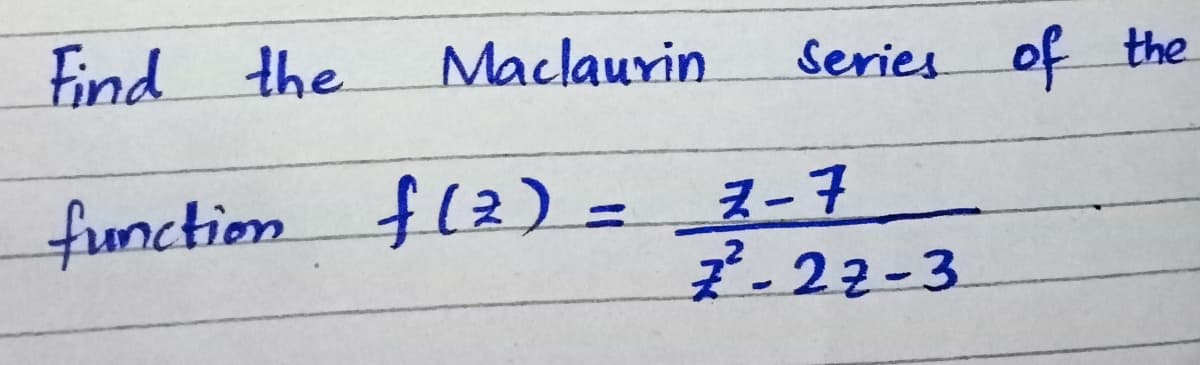 Find the Maclaurin Series of the
function f(z) = z-7 / z²-2z-3